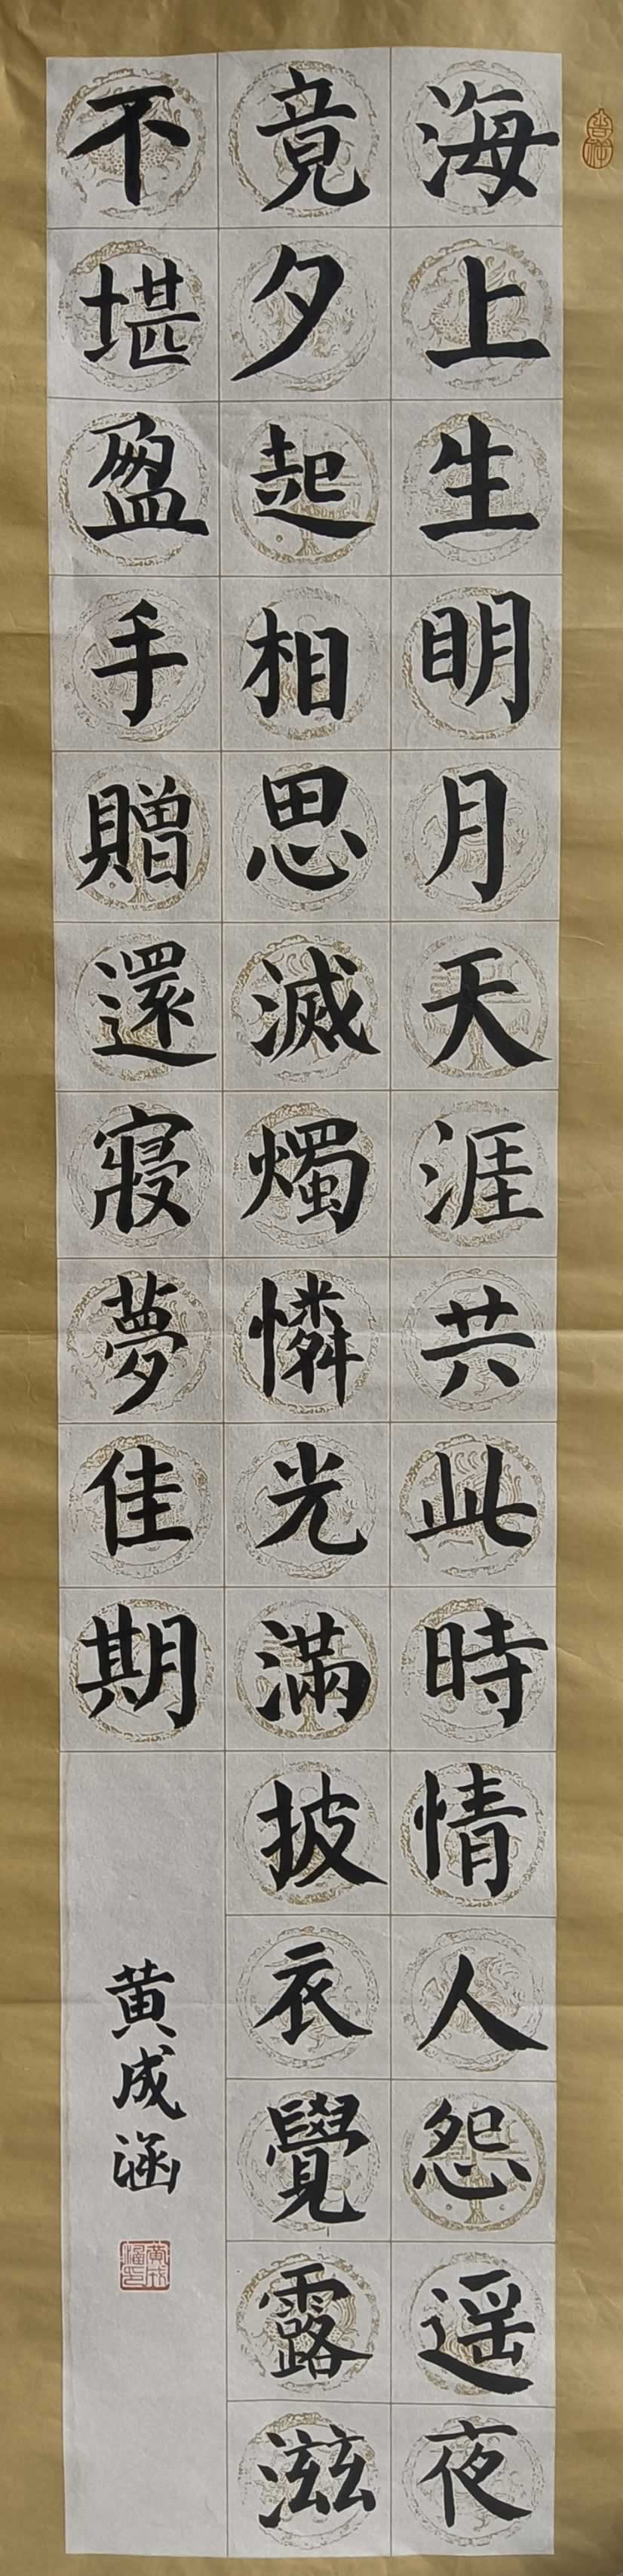 海上生明月天涯共此時情人怨遥夜
竟夕起相思滅燭憐光滿披衣覺露滋
不堪盈手贈還寢夢佳期
黄成涵